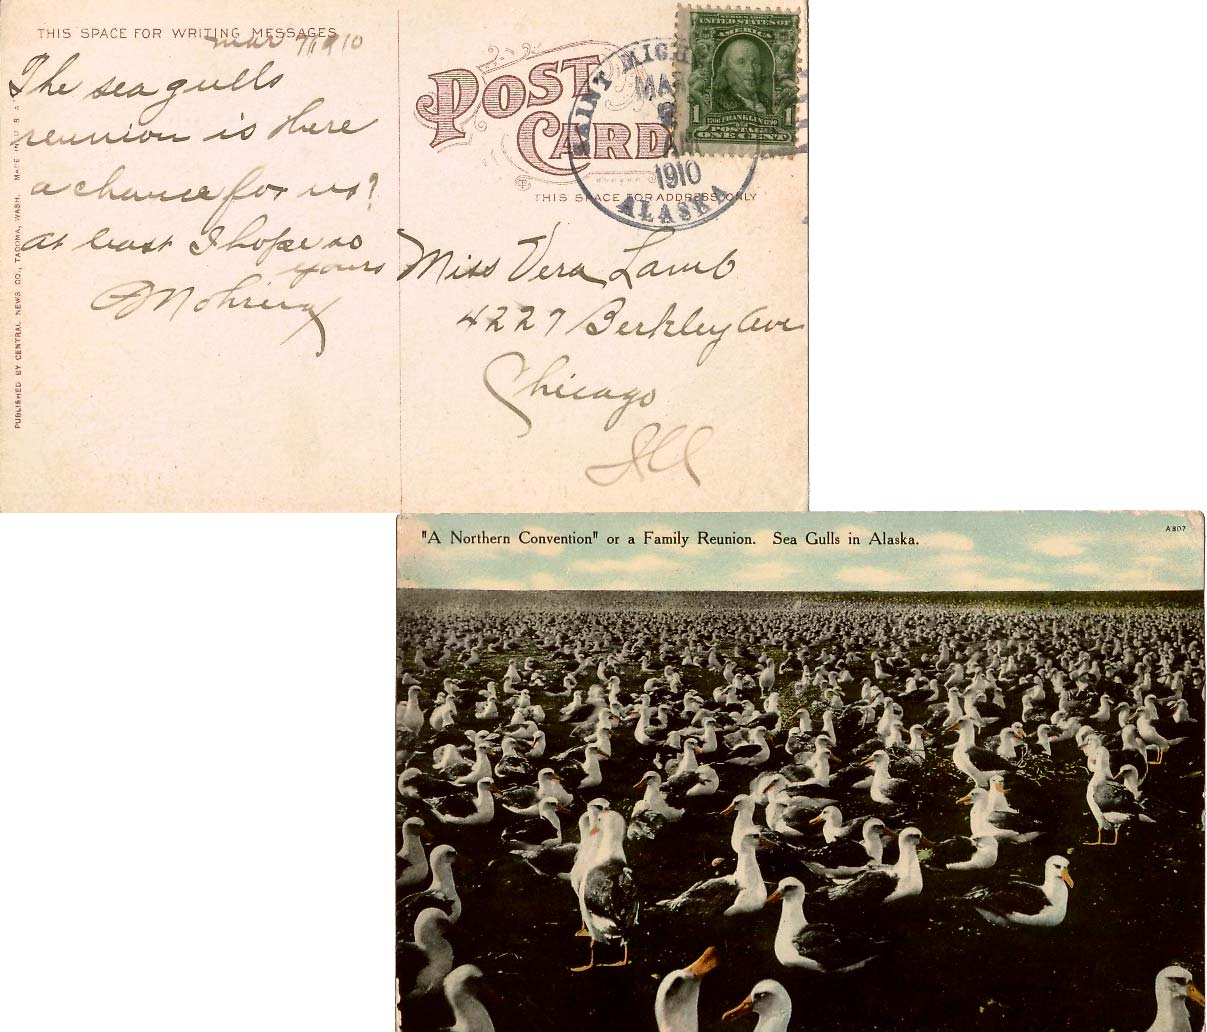 THIS SPACE FOR WRITING MESSAGES
Mar 7 1910
The sea gulls
reunion is there
a chance for us?
at least I hope so
yours
PUBLISHED BY CENTRAL NEWS CO., TACOMA, WASH. MADE IN U S A
POST
CARD
THIS SPACE FOR ADDRESS ONLY
SAINT MICH
MAR
1910
ALASKA
SERIES 1902
UNITED STATES OF
AMERICA
1706 FRANKLIN 1790
1 POSTAGE 1
ONE CENT
Miss Vera Lamb
4227 Berkley Ave
Chicago
Ill
"A Northern Convention" or a Family Reunion. Sea Gulls in Alaska.
A807